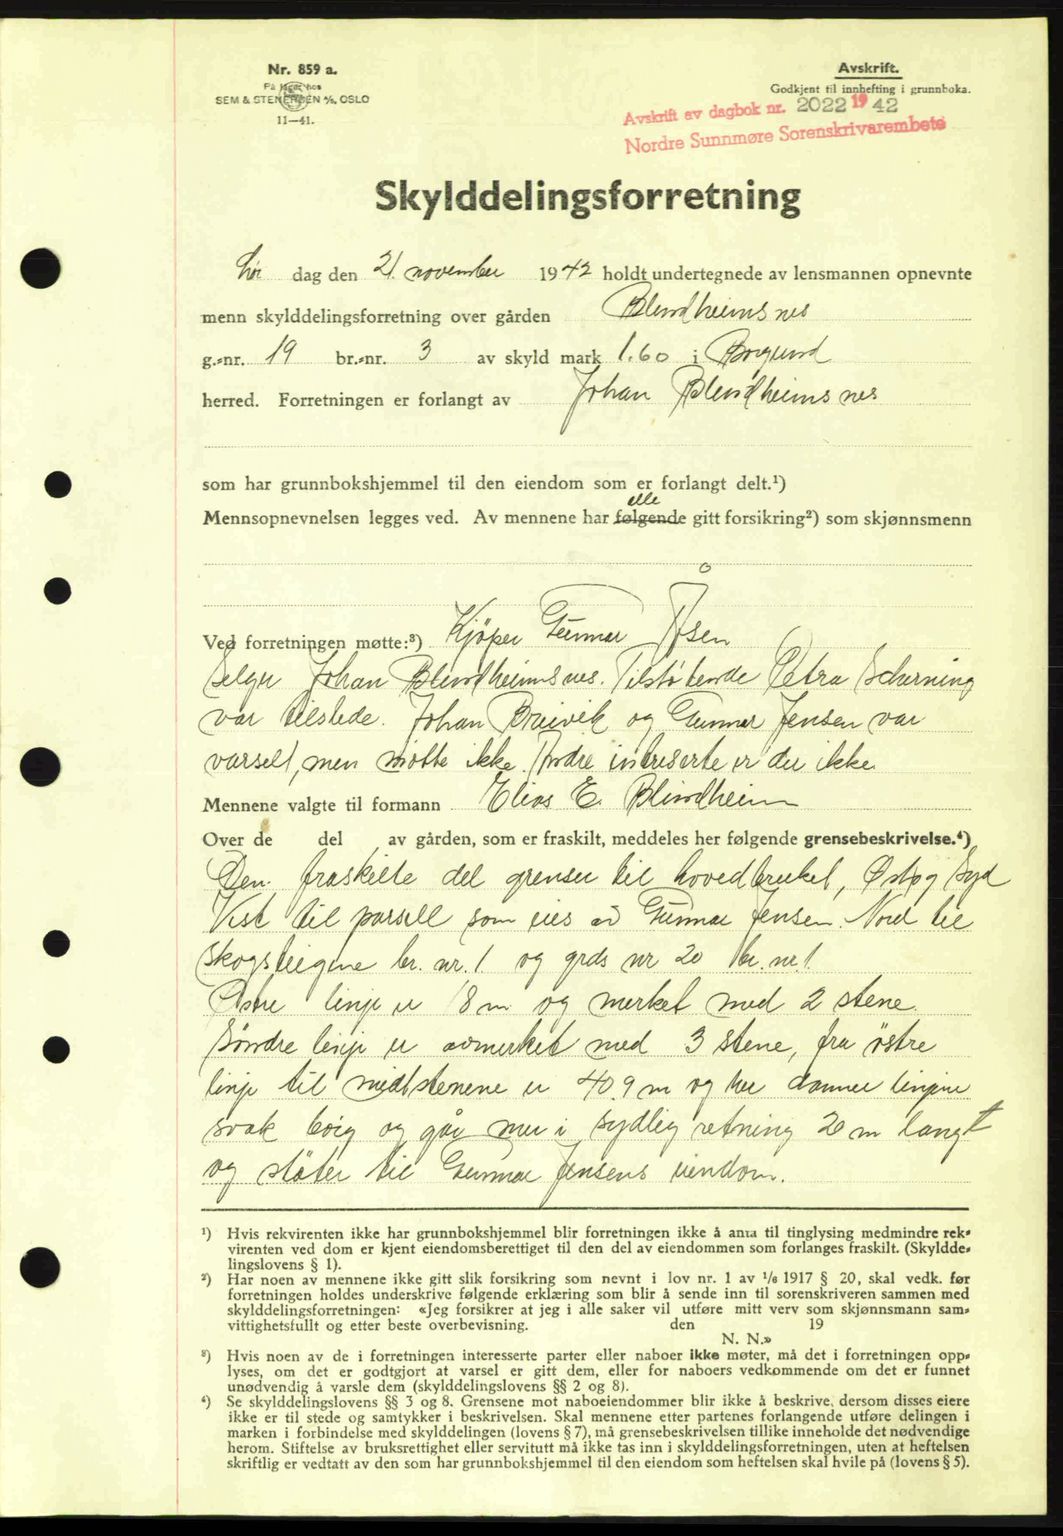 Nr. 859 a.
På lager hos
SEM & STENERSEN A/S, OSLO
11—41.
Avskrift.
Godkjent til innhefting i grunnboka.
Avskrift av dagbok nr. 2022 1942
Nordre Sunnmøre Sorenskrivarembete
Skylddelingsforretning
Lør dag den 21. november 1942 holdt undertegnede av lensmannen opnevnte
menn skylddelingsforretning over gården Blindheimsnes
g.-nr. 19 br.-nr. 3 av skyld mark 1.60 i Borgund
herred. Forretningen er forlangt av Johan Blindheimsnes
som har grunnbokshjemmel til den eiendom som er forlangt delt.¹)
alle
Mennsopnevnelsen legges ved. Av mennene har følgende gitt forsikring²) som skjønnsmenn
Ved forretningen møtte:³) Kjöper Gunnar Åsen
Selger Johan Blindheimsnes. Tilstøtende Petra Scherning
var tilstede. Johan Breivik og Gunnar Jensen var
varselt, men møtte ikke. Andre intriserte er der ikke.
Mennene valgte til formann Elias E. Blindheim
Over de del av gården, som er fraskilt, meddeles her følgende grensebeskrivelse.⁴)
Den fraskilte del grenser til hovedbruket, Øst og Syd
Vest til parsell som eies av Gunnar Jensen. Nord til
skogsteigene br. nr. 1 og grds nr 20 br. nr. 1.
Østre linje er 18 m og merket med 2 stene.
Søndre linje er avmerket med 3 stene, fra östre
linje til midtstenene er 40,9 m og her danner linjene
svak bøig og går mer i sydlig retning 20 m langt
og støter til Gunnar Jensens eiendom.
¹) Hvis rekvirenten ikke har grunnbokshjemmel blir forretningen ikke å anta til tinglysing medmindre rek-
virenten ved dom er kjent eiendomsberettiget til den del av eiendommen som forlanges fraskilt. (Skyldde-
lingslovens § 1).
²) Har noen av mennene ikke gitt slik forsikring som nevnt i lov nr. 1 av 1/6 1917 § 20, skal vedk. før
forretningen holdes underskrive følgende erklæring som blir å sende inn til sorenskriveren sammen med
skylddelingsforretningen: «Jeg forsikrer at jeg i alle saker vil utføre mitt verv som skjønnsmann sam-
vittighetsfullt og etter beste overbevisning. den 19
N. N.»
³) Hvis noen av de i forretningen interesserte parter eller naboer ikke møter, må det i forretningen opp-
lyses, om det er godtgjort at varsel er gitt dem, eller for naboers vedkommende om det er funnet
unødvendig å varsle dem (skylddelingslovens §§ 2 og 8).
⁴) Se skylddelingslovens §§ 3 og 8. Grensene mot naboeiendommer blir ikke å beskrive, dersom disses eiere
ikke er til stede og samtykker i beskrivelsen. Skal mennene etter partenes forlangende utføre delingen i
marken i forbindelse med skylddelingen (lovens § 7), må grensebeskrivelsen tillike inneholde det nødvendige
herom. Stiftelse av bruksrettighet eller servitutt må ikke tas inn i skylddelingsforretningen, uten at heftelsen
skriftlig er vedtatt av den som har grunnbokshjemmel til den eiendom som heftelsen skal hvile på (lovens § 5).